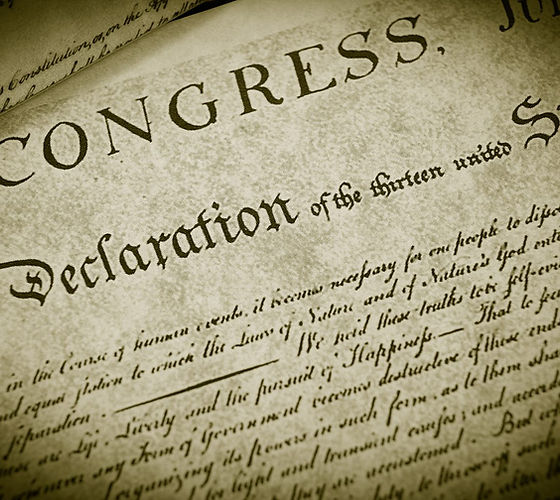 Constitution, or, on the App
CONGRESS, JU
Declaration of the thirteen united S
in the Course of human events, it becomes necessary for one people to diſso
and equal station to which the Laws of Nature and of Nature's God ent
separation. We hold these truths to be self-evi
these are Life, Liberty and the pursuit of Happiness.— That to sec
whenever any Form of Government becomes destructive of these ends,
organizing its powers in such form, as to them s
for light and transient causes; and accord
they are accustomed. But
to throw off such